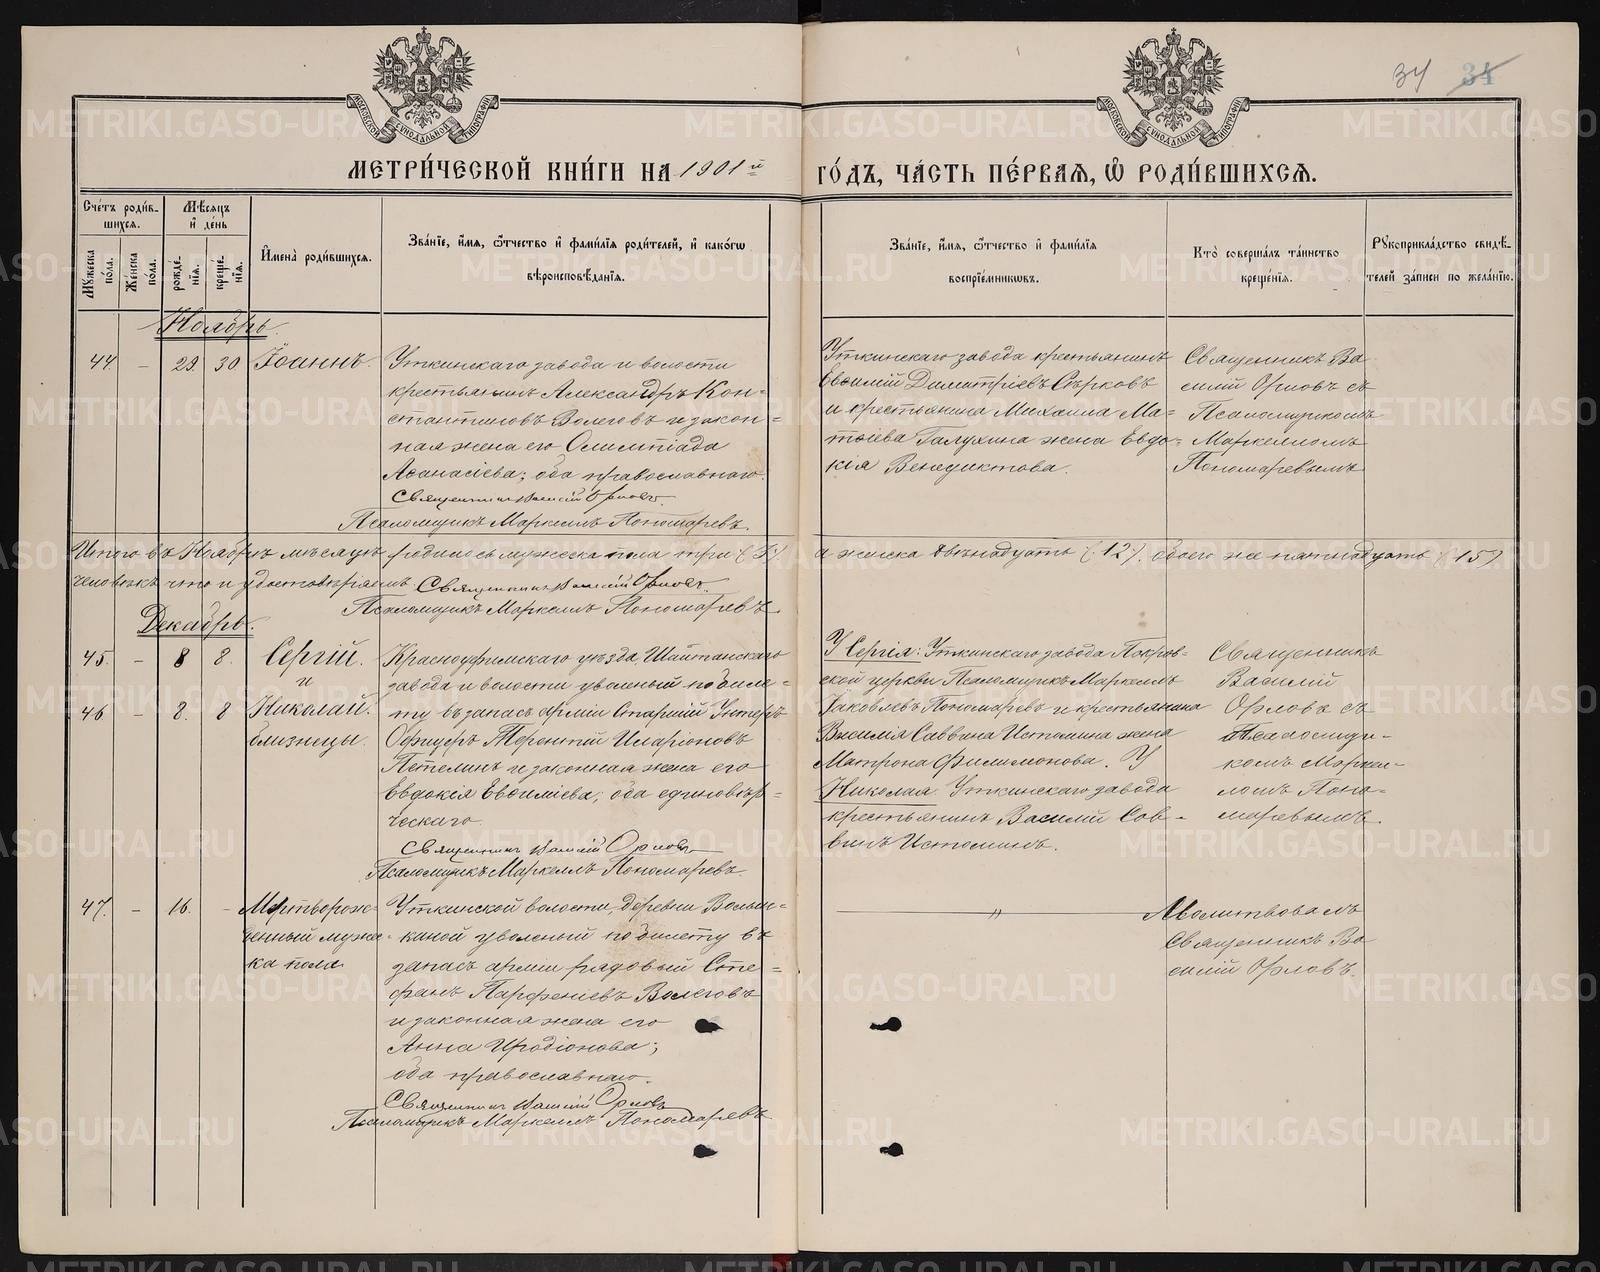 34 34
МОСКОВСКОЙ СѴНОДАЛЬНОЙ ТИПОГРАФІИ
МОСКОВСКОЙ СѴНОДАЛЬНОЙ ТИПОГРАФІИ
МЕТРИ́ЧЕСКОЙ КНИ́ГИ НА 1901й ГО́ДЪ, ЧА́СТЬ ПЕ́РВАѦ, Ѡ РОДИ́ВШИХСѦ.
Сче́тъ роди́в-
шихсѧ.
Мѣ́сѧцъ
и де́нь
Мꙋ́жеска
по́ла.
Же́нска
по́ла.
рожде́-
нїѧ.
креще́-
нїѧ.
Имена̀ роди́вшихсѧ.
Зва́нїе, и́мѧ, ѻ҆́тчество и фами́лїѧ роди́телей, и како́гѡ
вѣроисповѣ́данїѧ.
Зва́нїе, и́мѧ, ѻ҆́тчество и фами́лїѧ
воспрїе́мникѡвъ.
Кто̀ соверша́лъ та́инство
креще́нїѧ.
Рꙋкоприкла́дство свидѣ́-
телей за́писи по жела́нїю.
Ноябрь.
44. - 29. 30 Іоаннъ.
Уткинскаго завода и волости
крестьянинъ Александръ Кон-
стантиновъ Волеговъ и закон=
ная жена его Олимпіада
Аѳанасіева; оба православнаго.
Священникъ Василій Орловъ
Псаломщикъ Маркеллъ Пономаревъ.
Уткинскаго завода крестьянинъ
Евѳимій Димитріевъ Сѣрковъ
и крестьянина Михаила Ма-
тѳіева Галухина жена Евдо-
кія Венедиктова.
Священникъ Ва
силій Орловъ съ
Псаломщикомъ
Маркелломъ
Пономаревымъ
Итого въ Ноябрѣ мѣсяцѣ родилось мужеска пола три (3) а женска двѣнадцать (12). обоего же пятнадцать (15)
человѣкъ что и удостовѣряемъ Священникъ Василій Орловъ.
Псаломщикъ Маркеллъ Пономаревъ
Декабрь.
45. - 8 8. Сергій.
и
46 - 8. 8 Николай.
близнецы.
Красноуфимскаго уѣзда, Шайтанскаго
завода и волости уволеный по биле-
ту въ запасъ арміи Старшій Унтеръ
Офицеръ Терентій Иларіоновъ
Петелинъ и законная жена его
Евдокія Евѳиміева, оба единовѣр=
ческаго.
Священникъ Василій Орловъ
Псаломщикъ Маркеллъ Пономаревъ.
У Сергія: Уткинскаго завода Покров-
ской церкви Псаломщикъ Маркеллъ
Іаковлевъ Пономаревъ и крестьянина
Василія Саввина Истомина жена
Матрона Филимонова. У
Николая Уткинскаго завода
крестьянинъ Василій Сав-
винъ Истоминъ.
Священникъ
Василій
Орловъ съ
Псаломщи-
комъ Маркел-
ломъ Поно-
маревымъ.
47. - 16. - Мертворож-
денный мужес-
ка пола
Уткинской волости, деревни Волын-
киной уволеный по билету въ
запасъ арміи рядовый Сте=
фанъ Парфеніевъ Волеговъ
и законная жена его
Анна Иродіонова;
оба православнаго.
Священникъ Василій Орловъ
Псаломщикъ Маркеллъ Пономаревъ
— " —
Молитвовалъ
Священникъ Ва
силій Орловъ.
METRIKI.GASO-URAL.RU